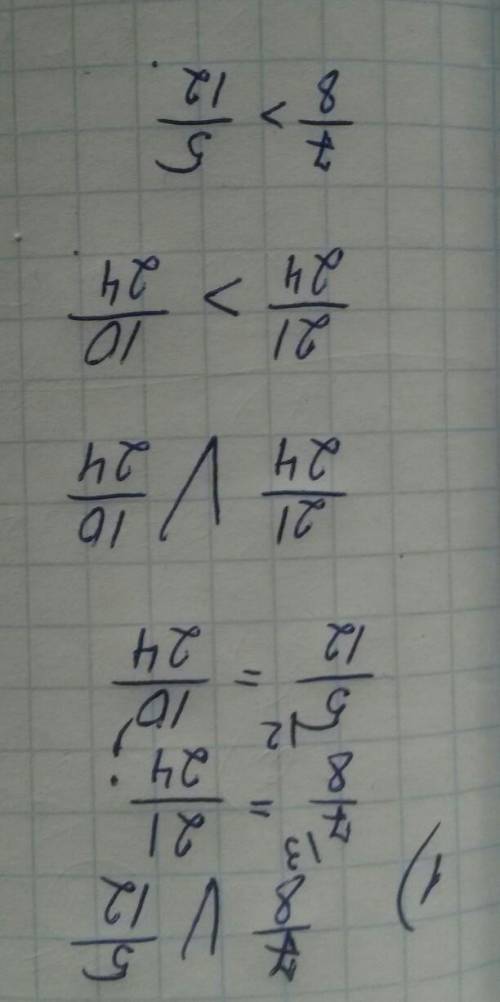 1) 7/8 V 5/12
7/8\3 = 21/24;
5/12\2 = 10/24
21/24 V 10/24
21/24 > 10/24.
7/8 > 5/12.